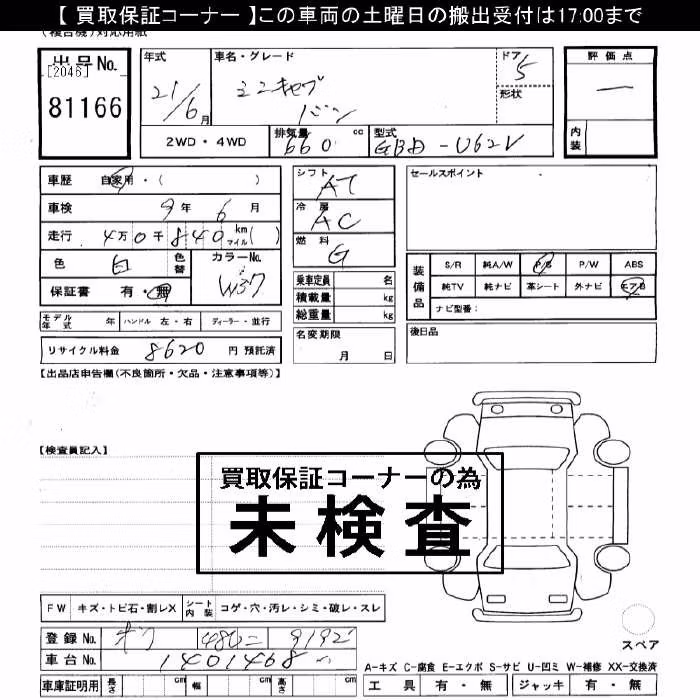 【 買取保証コーナー 】この車両の土曜日の搬出受付は17:00まで
(複合機)対応用紙
出品No.
[2046]
81166
年式
21/6月
車名・グレード
ミニキャブ
バン
ドア
5
形状
2WD・4WD
排気量 660 cc
型式 GBD-U62V
評価点
―
内装
車歴 自家用・( )
車検 9年 6月
走行 4万0千840 km マイル( )
色 白 色替
カラーNo. W37
保証書 有・無
シフト AT
冷房 AC
燃料 G
乗車定員 名
積載量 kg
総重量 kg
セールスポイント
装備品
S/R 純A/W P/S P/W ABS
純TV 純ナビ 革シート 外ナビ エアB
ナビ型番:
モデル年式 年 ハンドル 左・右 ディーラー・並行
リサイクル料金 8620 円 預託済
名変期限
月 日
後日品
【出品店申告欄(不良箇所・欠品・注意事項等)】
【検査員記入】
買取保証コーナーの為
未検査
FW キズ・トビ石・割レX シート内装 コゲ・穴・汚レ・シミ・破レ・スレ
登録No. 480 9192
車台No. 1401468
スペア
A-キズ C-腐食 E-エクボ S-サビ U-凹ミ W-補修 XX-交換済
車庫証明用 長さ cm 幅 cm 高さ cm
工具 有・無 ジャッキ 有・無